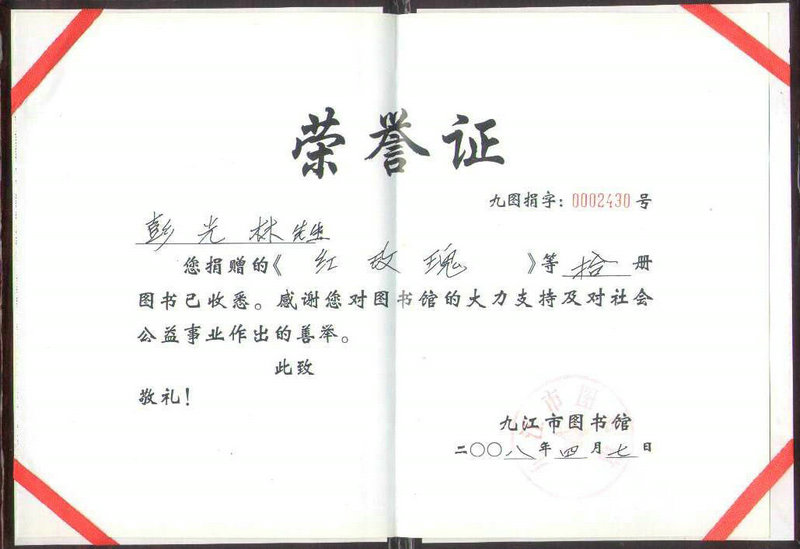 荣誉证
九图捐字：0002430号
彭光林先生
您捐赠的《红玫瑰》等拾册
图书已收悉。感谢您对图书馆的大力支持及对社会
公益事业作出的善举。
此致
敬礼！
九江市图书馆
二〇〇八年四月七日